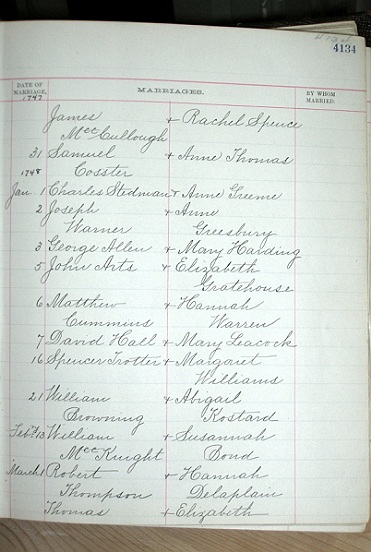 4134
DATE OF MARRIAGE, MARRIAGES. BY WHOM MARRIED.
1747
James + Rachel Spence
McCullough
31 Samuel + Anne Thomas
Cosster
1748
Jan. 1 Charles Stedman + Anne Greeme
2 Joseph + Anne
Warner Greesbury
3 George Allen + Mary Harding
5 John Arts + Elizabeth
Gratehouse
6 Matthew + Hannah
Cummins Warren
7 David Hall + Mary Leacock
16 Spencer Trotter + Margaret
Williams
21 William + Abigail
Browning Kostard
Feb'y 13 William + Susannah
McKnight Bond
March 1 Robert + Hannah
Thompson Delaplain
Thomas + Elizabeth